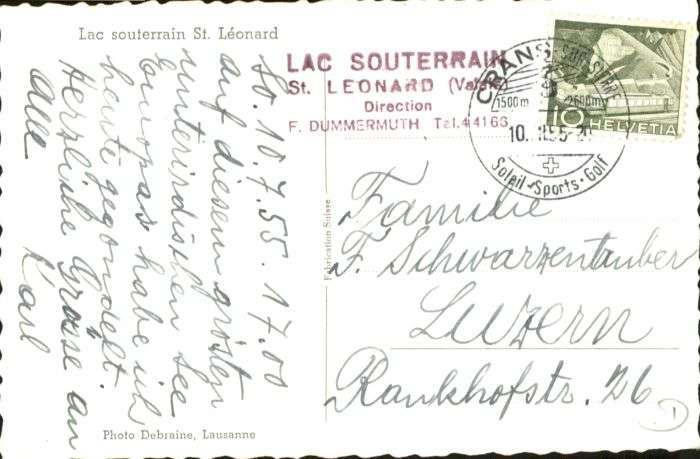 Lac souterrain St. Léonard
LAC SOUTERRAIN
St. LEONARD (Valais)
Direction
F. DUMMERMUTH Tel. 4 41 66
CRANS SUR SIERRE
1500m 2600m
10. 55-20
Soleil-Sports-Golf
10 HELVETIA
So. 10.7.55. 17.00
auf diesem grössten
unterirdischen See
Europas habe ich
heute gegondelt.
Herzliche Grüsse an
alle Karl
Fabrication Suisse
Familie
F. Schwarzentauber
Luzern
Rankhofstr. 26
1
Photo Debraine, Lausanne